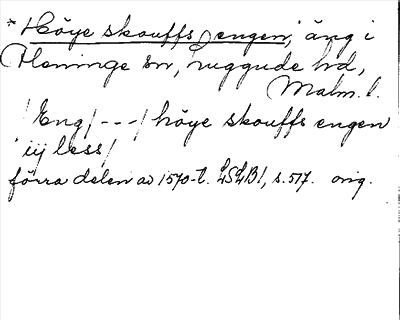 * Höye skouffs engen, äng i
Fleninge sn, Luggude hd,
Malm. l.
/Eng/ --- / höye skouffs engen
iij less/
förra delen av 1570-t. LSLB1, s. 517. orig.